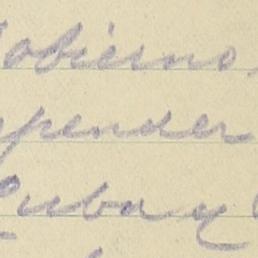 Gobierno,
pender
Cuba y